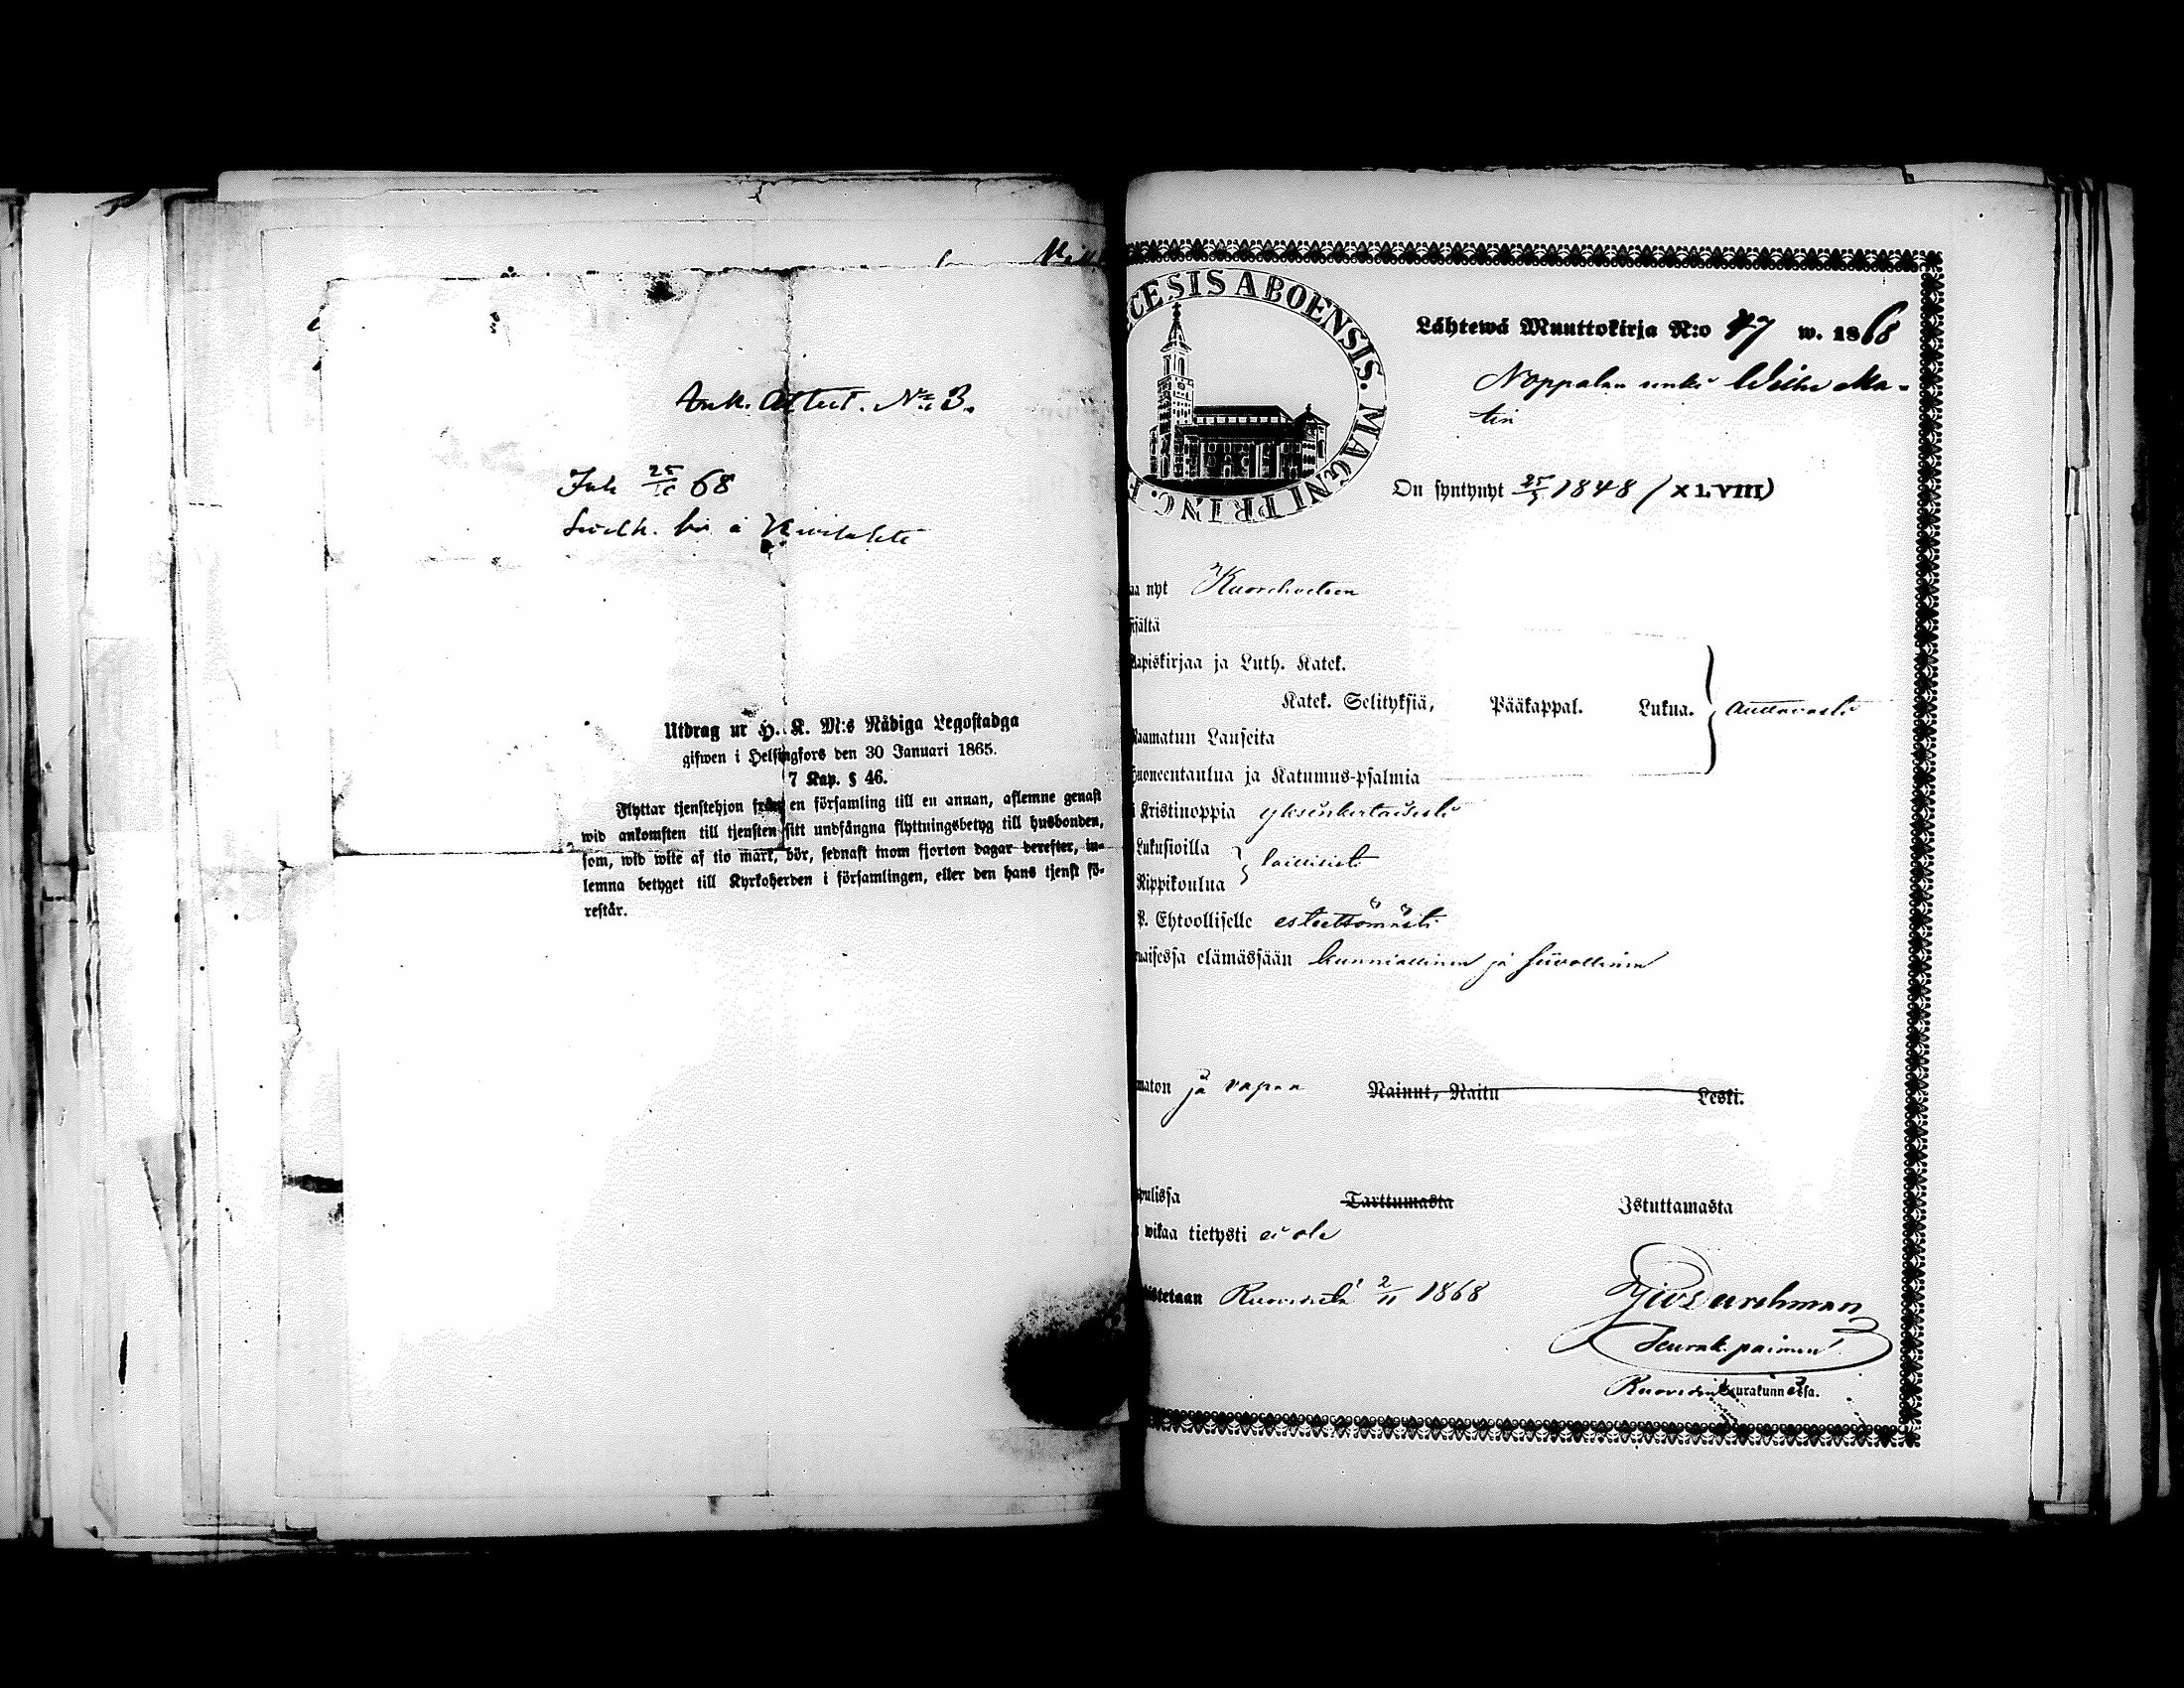 Ank. Attest. No 3.
Ink 25/11 68
bor å
Utdrag ur H. K. M:s Nådiga Legostadga
gifwen i Helsingfors den 30 Januari 1865.
7 Kap. § 46.
Flyttar tjenstehjon från en församling till en annan, aflemne genast
wid ankomsten till tjensten sitt undfångna flyttningsbetyg till husbonden,
som, wid wite af tio mark, bör, sednast inom fjorton dagar derefter, in-
lemna betyget till Kyrkoherden i församlingen, eller den hans tjenst fö-
restår.
CESIS ABOENSIS. MAGNI PRINC. F
Lähtewä Muuttokirja N:o 47 w. 1868
Noppalan renki Wilho Ma-
tin
On syntynyt 25/5 1848 (XLVIII)
aa nyt Kuorehveteen
jältä
Aapiskirjaa ja Luth. Katek.
Katek. Selityksiä, Pääkappal. Lukua. auttavasti
Raamatun Lauseita
Huoneentaulua ja Katumus-psalmia
Kristinoppia yksinkertaisesti
Lukusioilla
Rippikoulua laillisesti
P. Ehtoolliselle esteettömästi
naisessa elämässään kunniallinen ja siivollinen
maton ja vapaa Nainut, Naitu Leski.
pulissa Tarttumasta Istuttamasta
wikaa tietysti ei ole
distetaan Ruovedellä 2/11 1868
Durchman
Seurak. paimen
Ruoveden Seurakunnassa.